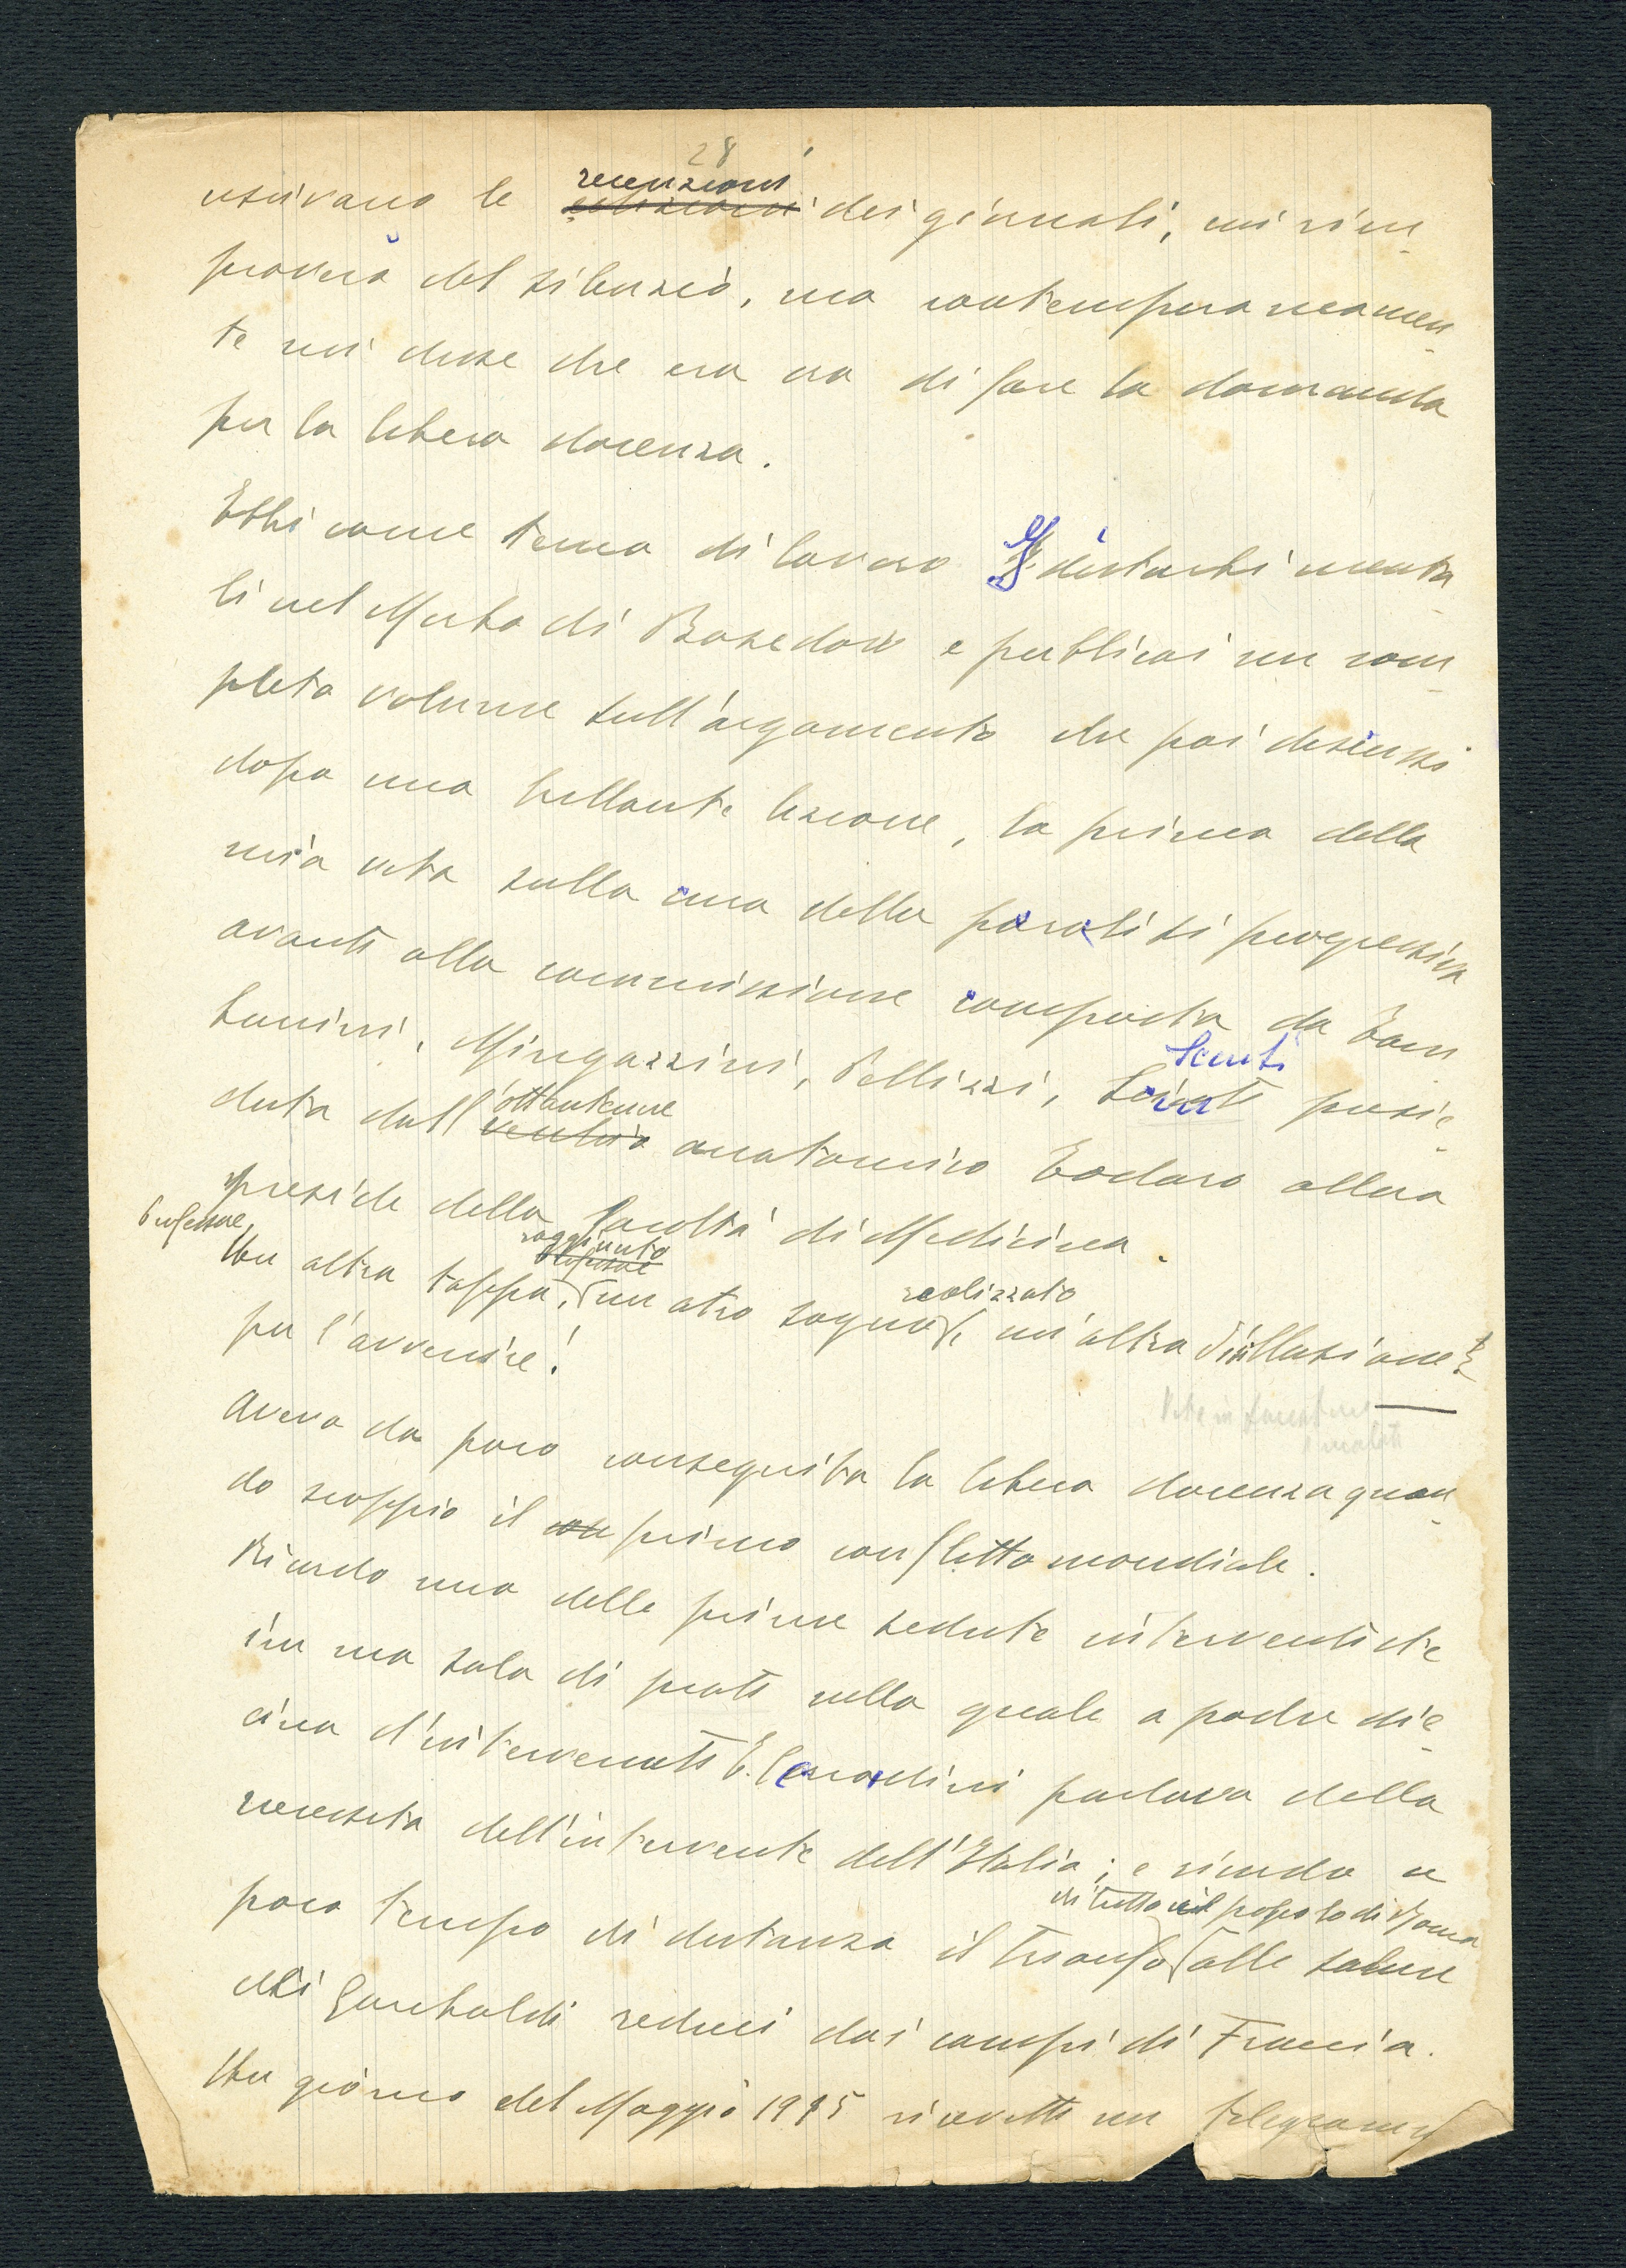 28
recenzioni
uscivano le dei giornali, mi rim
proverò del silenzio, ma contemporaneamen
te mi disse che era ora di fare la domanda
per la libera docenza.
Ebbi come tema di lavoro I disturbi menta
li nel Morbo di Basedow e pubblicai un com
pleto volume sull'argomento che poi discussi
dopo una brillante lezione, la prima della
mia vita sulla cura della paralisi progressiva
avanti alla commissione composta da Tam
Sciuti
burini, Mingazzini, Pellizzi, presie
ottantenne
duta dall' vecchio anatomico Todaro allora
preside della facoltà di Medicina.
Professore,
raggiunto
realizzato
Un altra tappa, un atro sogno, un'altra illusione
per l'avvenire!
Avevo da poco conseguita la libera docenza quan
do scoppio il con primo conflitto mondiale.
Ricordo una delle prime sedute interventiste
in una sala di prati nella quale a poche die
cina d'intervenuti E. Corradini parlava della
necessita dell'intervento dell'Italia; e ricordo a
di tutto il popolo di Roma
poco tempo di distanza il trionfo alle salme
dei Garibaldi reduci dai campi di Francia.
Un giorno del Maggio 1915 ricevetti un telegramm